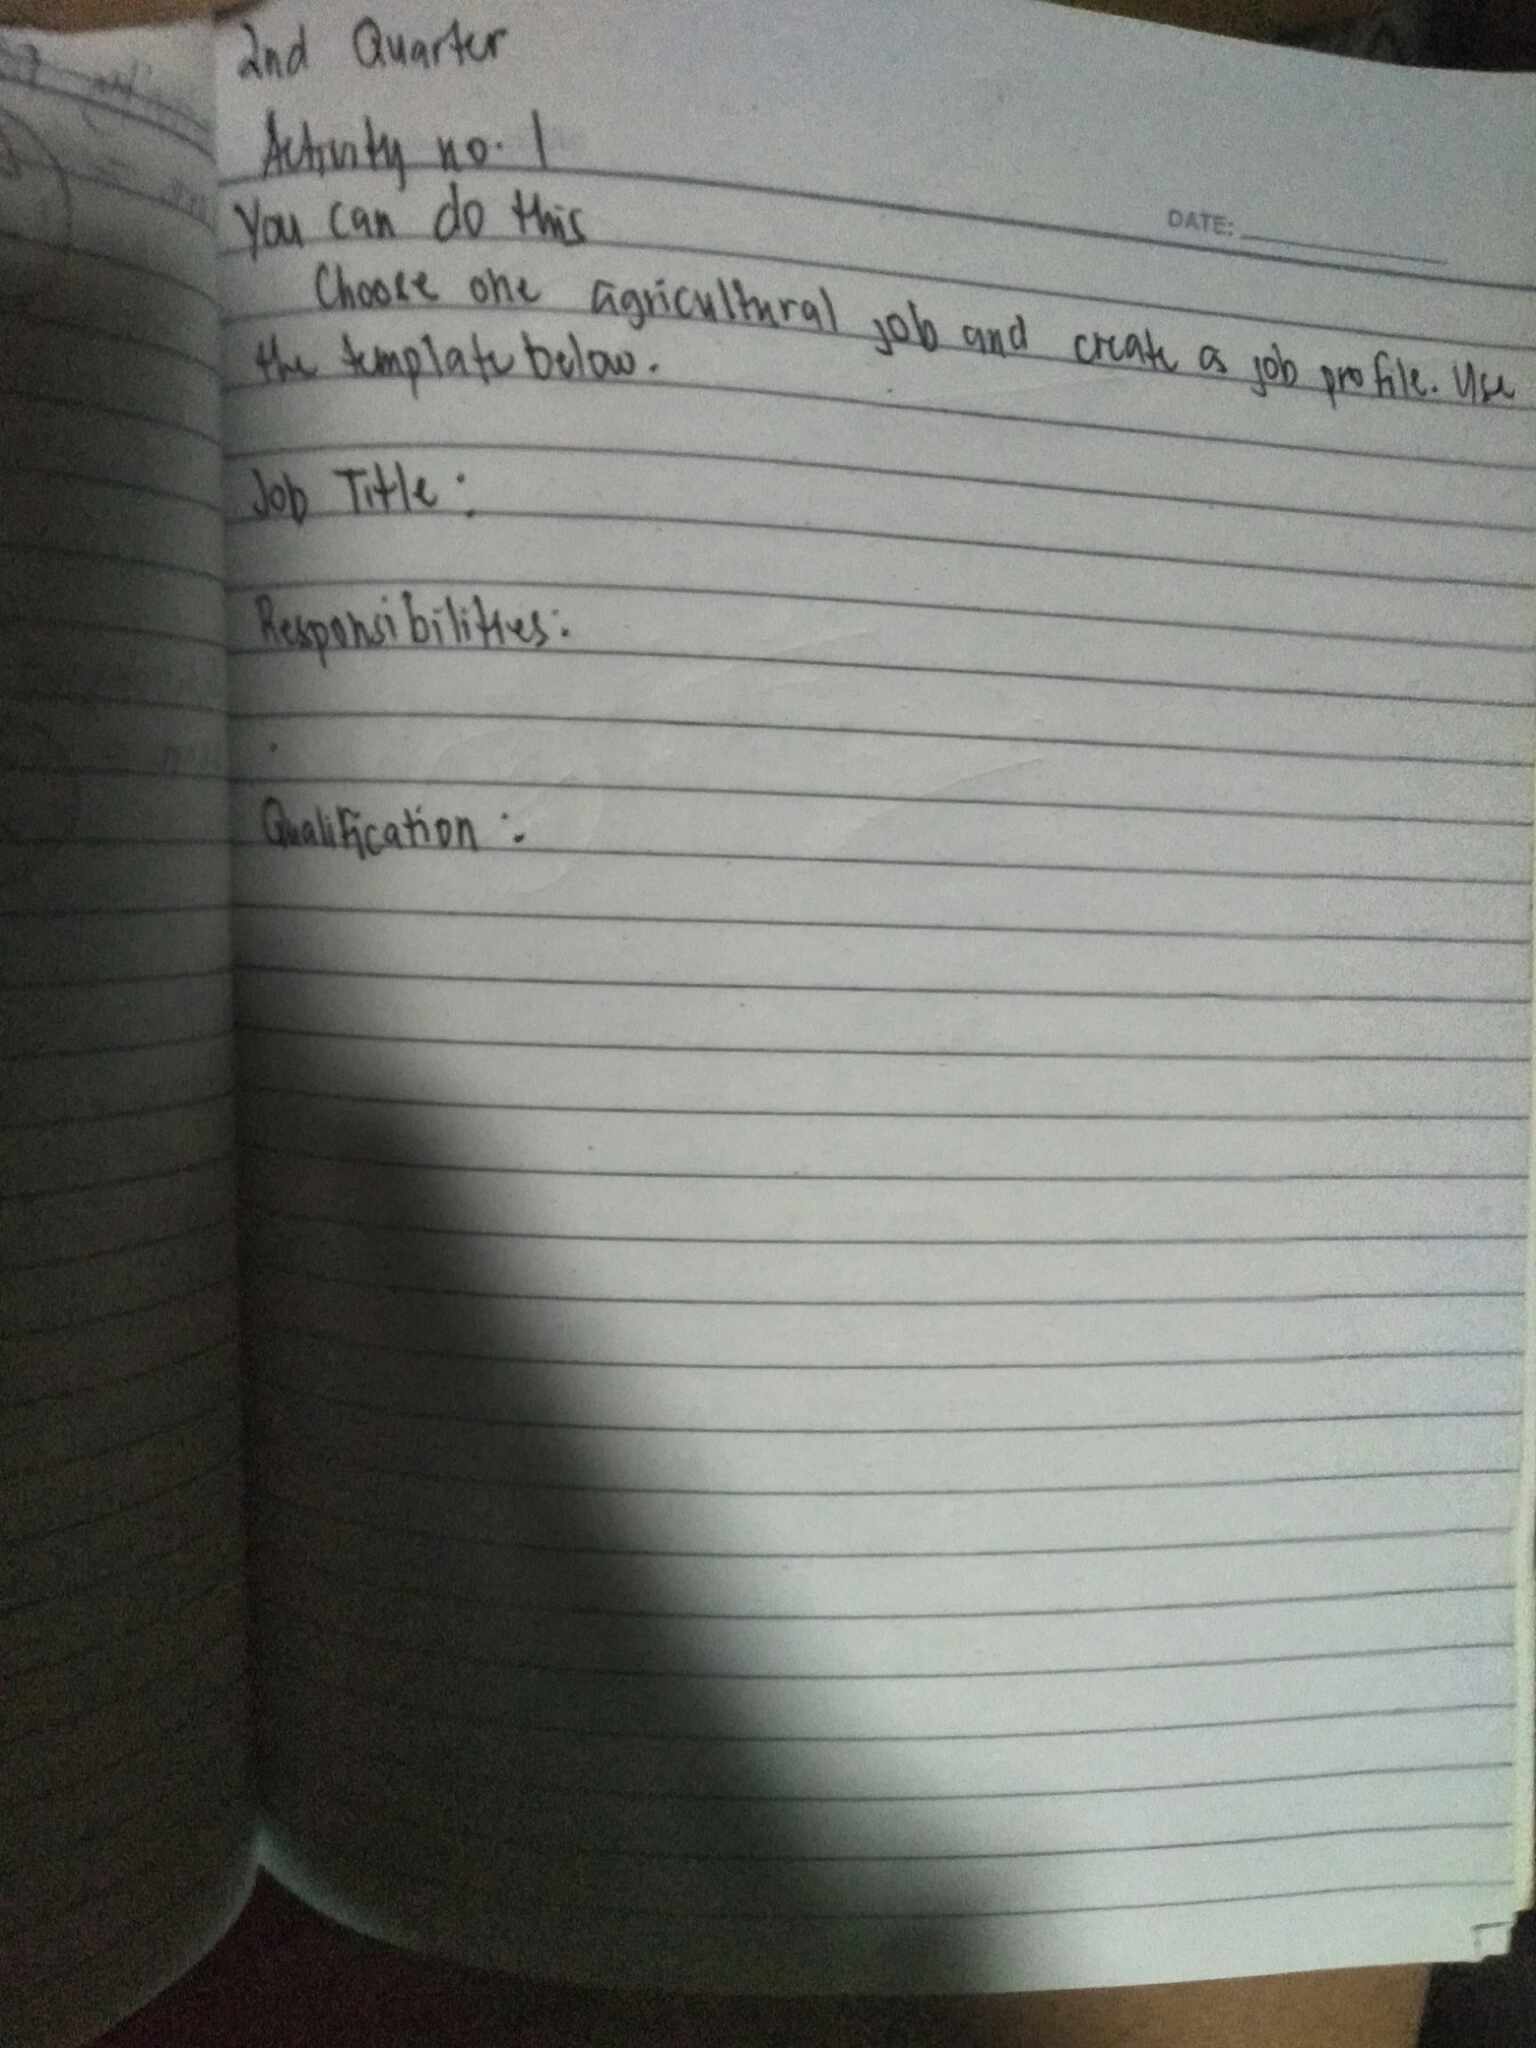 2nd Quarter
Activity no. 1
DATE:
You can do this
Choose one agricultural job and create a job profile. Use
the template below.
Job Title:
Responsibilities:
Qualification: